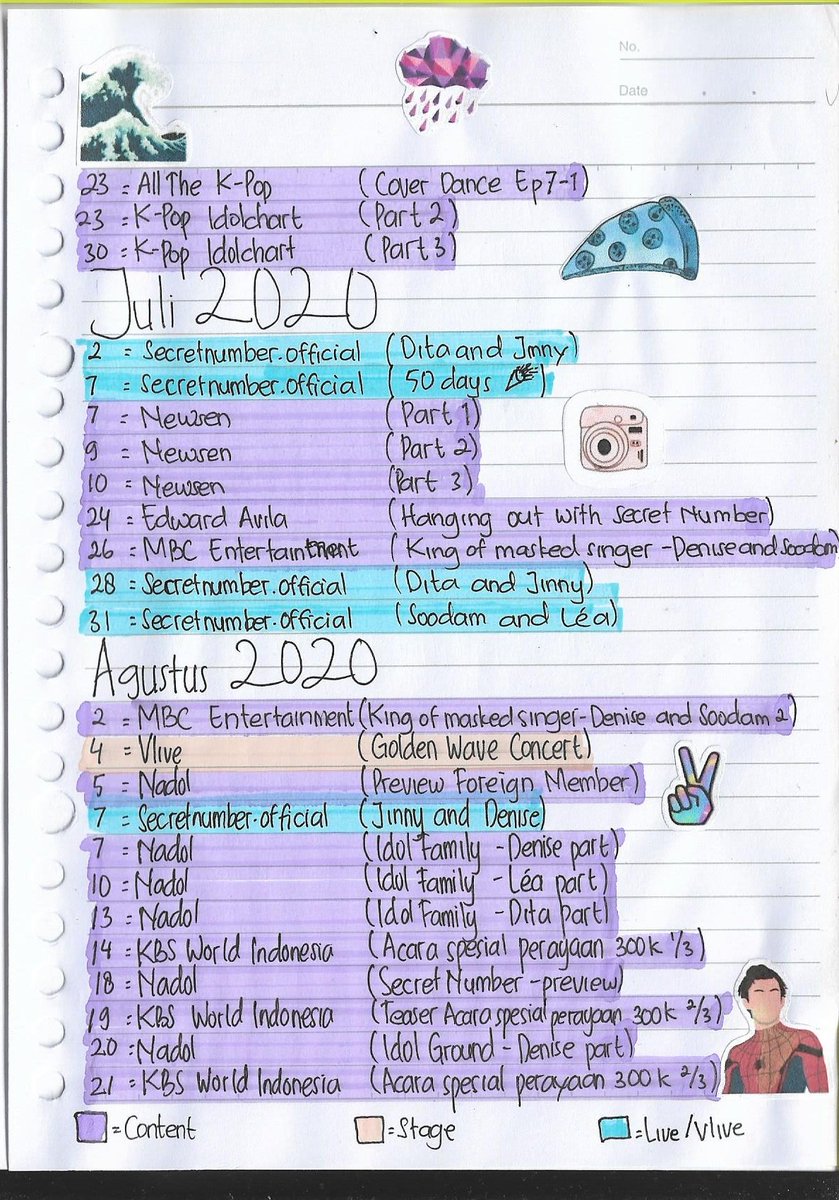 No.
Date
23 = All The K-Pop (Cover Dance Ep7-1)
23 = K-Pop Idolchart (Part 2)
30 = K-Pop Idolchart (Part 3)
Juli 2020
2 = Secretnumber.official (Dita and Jinny)
7 = Secretnumber.official (50 days
7 = Newsen (Part 1)
9 = Newsen (Part 2)
10 = Newsen (Part 3)
24 = Edward Avila (Hanging out with Secret Number)
26 = MBC Entertainment (King of masked singer - Denise and Soodam)
28 = Secretnumber.official (Dita and Jinny)
31 = Secretnumber.official (Soodam and Léa)
Agustus 2020
2 = MBC Entertainment (King of masked singer - Denise and Soodam 2)
4 = Vlive (Golden Wave Concert)
5 = Nadol (Preview Foreign Member)
7 = Secretnumber.official (Jinny and Denise)
7 = Nadol (Idol Family - Denise part)
10 = Nadol (Idol Family - Léa part)
13 = Nadol (Idol Family - Dita part)
14 = KBS World Indonesia (Acara spesial perayaan 300k 1/3)
18 = Nadol (Secret Number - preview)
19 = KBS World Indonesia (Teaser Acara spesial perayaan 300k 2/3)
20 = Nadol (Idol Ground - Denise part)
21 = KBS World Indonesia (Acara spesial perayaan 300k 2/3)
= Content = Stage = Live/Vlive